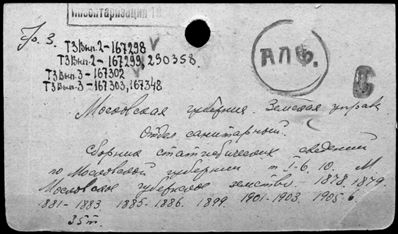 Инвентаризация
Гр. 3.
ТЗ Вып. 2-167298
ТЗ Вып. 2-167299, 290358.
ТЗ Вып. 3-167302
ТЗ Вып. 3-167303, 167348
АЛФ.
С
Московская губерния Земская управа
Отдел санитарный.
Сборник статистических сведений
по Московской губернии т I-6, 10. М
Московское губернское земство - 1878, 1879.
1881-1883 1885-1886. 1899. 1901-1903. 1905-6
35т.